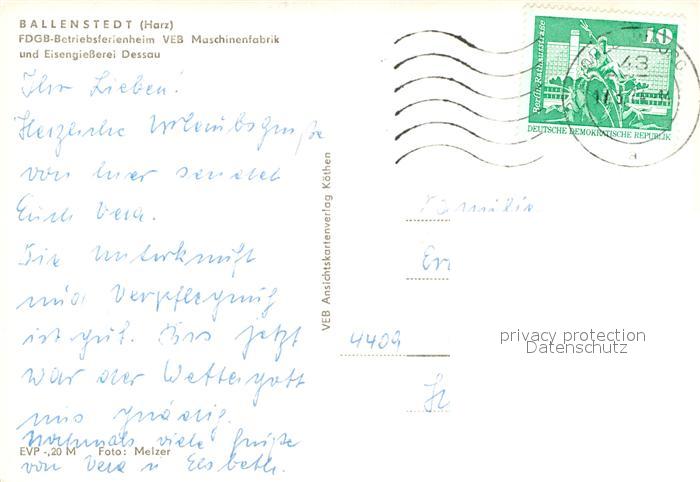 BALLENSTEDT (Harz)
FDGB-Betriebsferienheim VEB Maschinenfabrik
und Eisengießerei Dessau
Ihr Lieben!
Herzliche Urlaubsgrüße
von hier sendet
Euch Vera.
Die Unterkunft
und Verpflegung
ist gut. Bis jetzt
war der Wettergott
uns gnädig.
Nochmals viele Grüße
von Vera u Elsbeth.
EVP -,20 M Foto: Melzer
VEB Ansichtskartenverlag Köthen
10
Berlin, Rathausstraße
DEUTSCHE DEMOKRATISCHE REPUBLIK
43
a
Familie
4409
privacy protection
Datenschutz